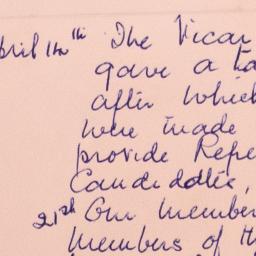 The Vicar
gave a ta
after which
were made
provide Refre
Candidates,
21st Our member
Members of th